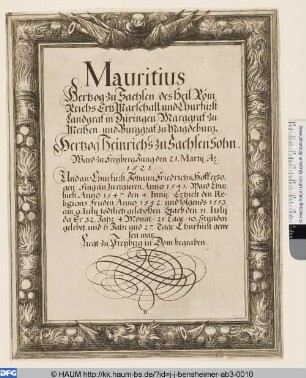 Mauritius
Hertzog zu Sachsen des Heil. Röm.
Reichs Ertz Marschall und Churfürst
Landgraf in Düringen Marggraf zu
Meißen und Burggraf zu Magdeburg.
Hertzog Heinrichs zu Sachsen Sohn.
Ward zu Freyberg Jung den 21. Martij Aº.
1521.
An der Churfürst Johann Friedrich Hoff erzo-
gen. Fing an zu regieren Anno 1541. Ward Chur
fürst Anno 1547 den 4. Junij. Erhielt den Re-
ligions Frieden Anno 1552. und folgends 1553.
am 9. July tödtlich geschoßen. Starb den 11. July
da Er 32. Jahr 4. Monat 21. Tage 10. Stunden
gelebet und 6. Jahr und 27. Tage Churfürst gewe
sen war.
Liegt zu Freyberg in Dom begraben.
DFG
© HAUM http://kk.haum-bs.de/?id=j-j-bensheimer-ab3-0010